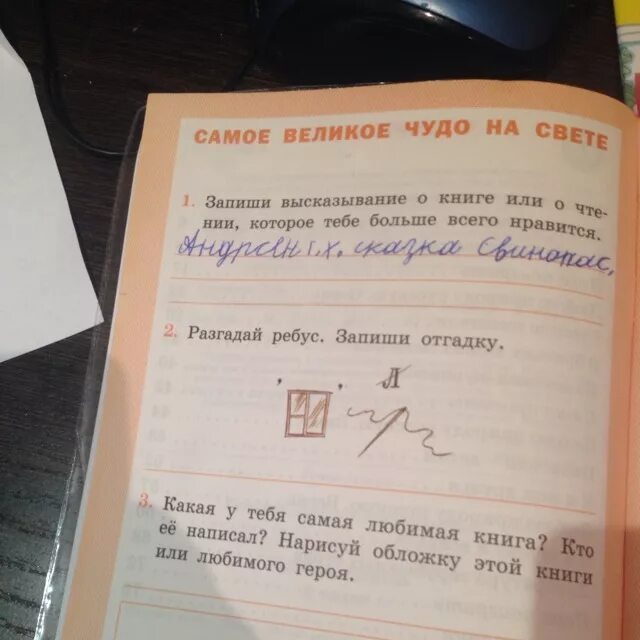 САМОЕ ВЕЛИКОЕ ЧУДО НА СВЕТЕ
1. Запиши высказывание о книге или о чте-
нии, которое тебе больше всего нравится.
Андрсен г.х. сказка Свинопас,
2. Разгадай ребус. Запиши отгадку.
, , Л
3. Какая у тебя самая любимая книга? Кто
её написал? Нарисуй обложку этой книги
или любимого героя.